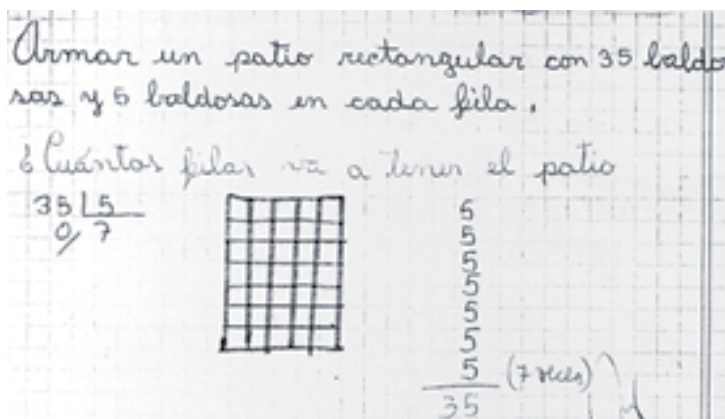 Armar un patio rectangular con 35 baldo
sas y 5 baldosas en cada fila.
¿Cuántas filas va a tener el patio
35 5
0 7
5
5
5
5
5
5
5 (7 veces)
35